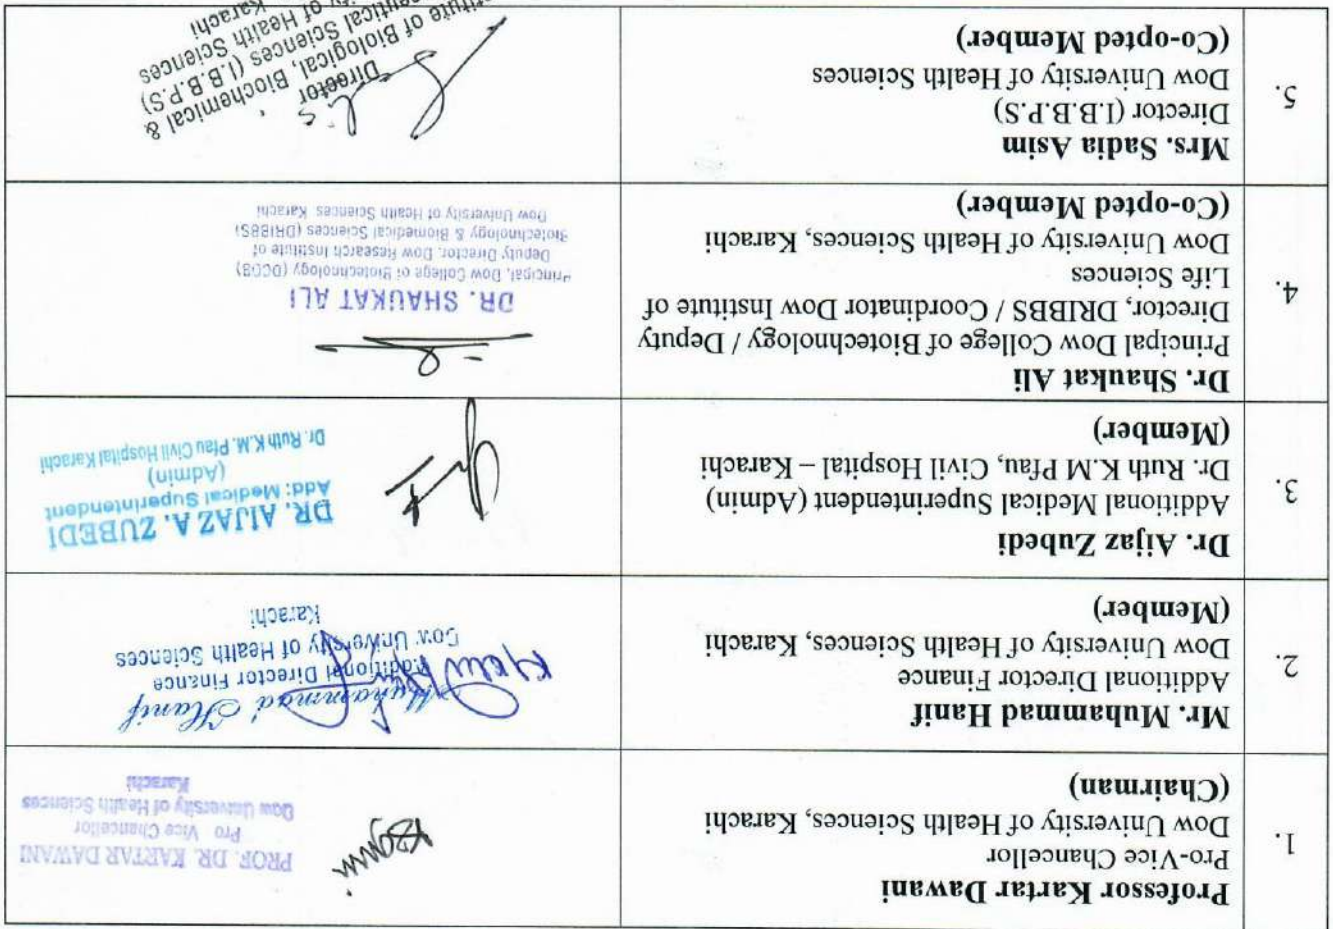 1.
Professor Kartar Dawani
Pro-Vice Chancellor
Dow University of Health Sciences, Karachi
(Chairman)
PROF. DR. KARTAR DAWANI
Pro Vice Chancellor
Dow University of Health Sciences
Karachi
2.
Mr. Muhammad Hanif
Additional Director Finance
Dow University of Health Sciences, Karachi
(Member)
Muhammad Hanif
Additional Director Finance
Dow University of Health Sciences
Karachi
3.
Dr. Aijaz Zubedi
Additional Medical Superintendent (Admin)
Dr. Ruth K.M Pfau, Civil Hospital – Karachi
(Member)
DR. AIJAZ A. ZUBEDI
Add: Medical Superintendent
(Admin)
Dr. Ruth K.M. Pfau Civil Hospital Karachi
4.
Dr. Shaukat Ali
Principal Dow College of Biotechnology / Deputy
Director, DRIBBS / Coordinator Dow Institute of
Life Sciences
Dow University of Health Sciences, Karachi
(Co-opted Member)
DR. SHAUKAT ALI
Principal, Dow College of Biotechnology (DCOB)
Deputy Director, Dow Research Institute of
Biotechnology & Biomedical Sciences (DRIBBS)
Dow University of Health Sciences Karachi
5.
Mrs. Sadia Asim
Director (I.B.B.P.S)
Dow University of Health Sciences
(Co-opted Member)
Director
of Biological, Biochemical &
Sciences (I.B.B.P.S)
of Health Sciences
Karachi